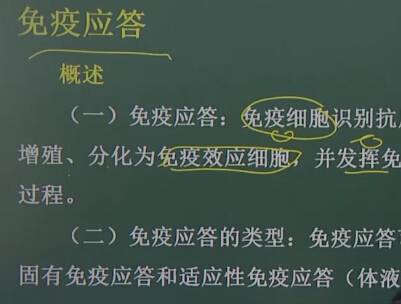 免疫应答
概述
（一）免疫应答：免疫细胞识别抗
增殖、分化为免疫效应细胞，并发挥免
过程。
（二）免疫应答的类型：免疫应答
固有免疫应答和适应性免疫应答（体液